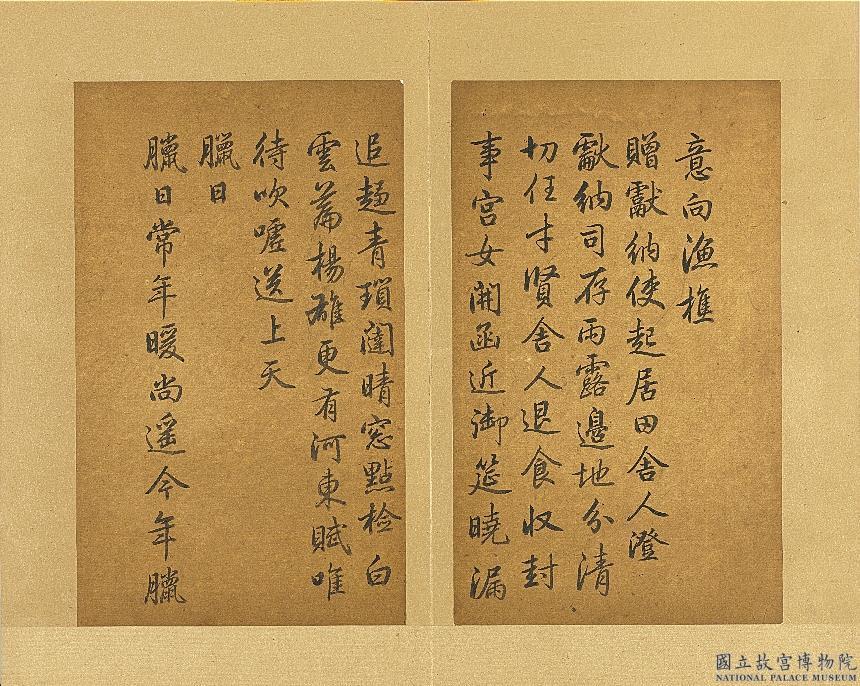 意向漁樵
贈獻納使起居田舍人澄
獻納司存雨露邊地分清
切任才賢舍人退食收封
事宮女開函近御筵曉漏
追趨青瑣闥晴窓點檢白
雲篇楊雄更有河東賦唯
待吹噓送上天
臘日
臘日常年暖尚遥今年臘
國立故宮博物院
NATIONAL PALACE MUSEUM